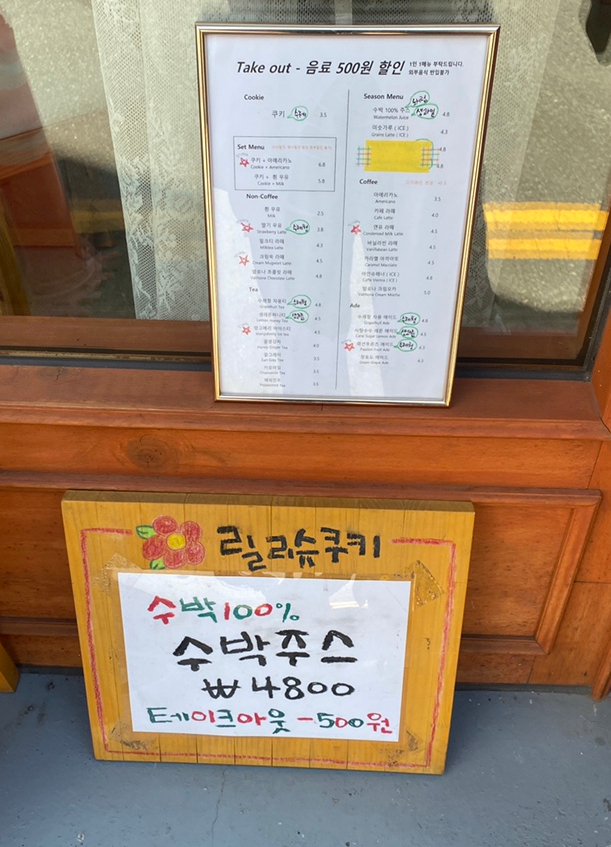 Take out - 음료 500원 할인
1인 1메뉴 부탁드립니다.
외부음식 반입불가
Cookie
쿠키 수제 3.5
Set Menu
쿠키 + 아메리카노 6.8
Cookie + Americano
쿠키 + 흰 우유 5.8
Cookie + Milk
Non-Coffee
흰 우유 2.5
Milk
딸기 우유 3.8
Strawberry Latte
밀크티 라떼 4.3
Milktea Latte
크림쑥 라떼 4.5
Cream Mugwort Latte
발로나 초콜릿 라떼 4.8
Valrhona Chocolate Latte
Tea
수제청 자몽티 4.8
Grapefruit Tea
4.5
Honey Black Tea
얼그레이
Earl Grey Tea
카모마일
Chamomile Tea
페퍼민트
Peppermint Tea
Season Menu
수박 100% 주스 생과일 4.8
Watermelon Juice
미숫가루 ( ICE ) 4.3
Grains Latte ( ICE )
4.8
4.8
Coffee
아메리카노 3.5
Americano
카페 라떼 4.0
Cafe Latte
연유 라떼 4.5
Condensed Milk Latte
바닐라빈 라떼 4.5
Vanillabean Latte
카라멜 마끼아또 4.5
Caramel Macciato
아인슈페너 ( ICE ) 4.8
Caffe Vienna ( ICE )
발로나 크림모카 5.0
Valrhona Cream Mocha
Ade
수제청 자몽 에이드 4.8
Grapefruit Ade
Cane Sugar Lemon Ade 4.5
패션후르츠 에이드 4.5
Passion Fruit Ade
청포도 에이드 4.5
Green Grape Ade
릴리슈쿠키
수박100%
수박주스
₩4800
테이크아웃 -500원